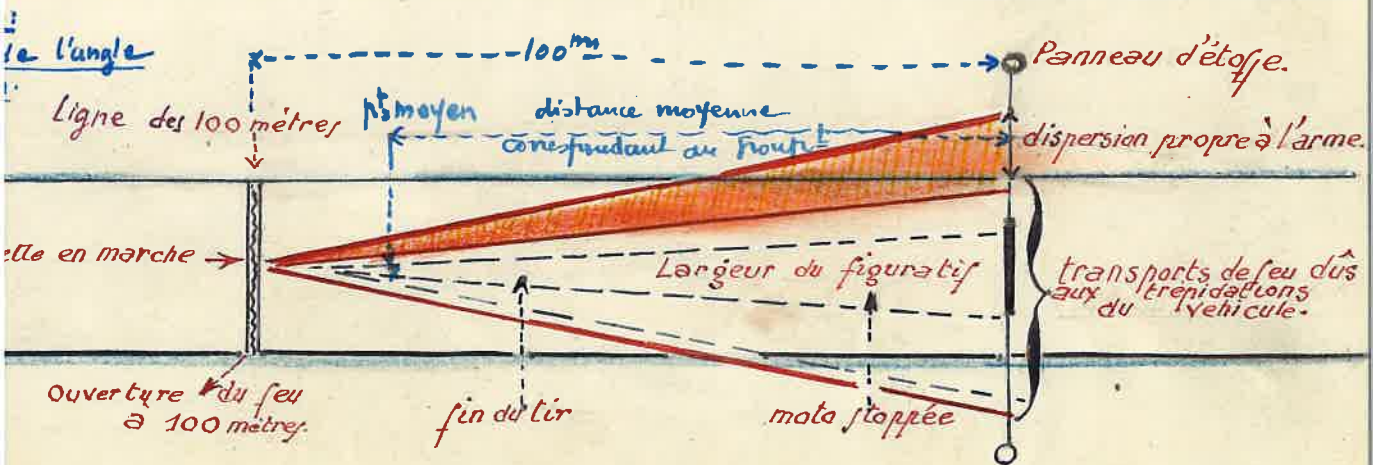 l'angle
100m
Panneau d'étoffe.
Ligne des 100 métres
pt moyen
distance moyenne
correspondant au
dispersion propre à l'arme.
en marche
Largeur du figuratif
transports de feu dûs
aux trépidations
du véhicule.
Ouverture du feu
à 100 mètres.
fin du tir
moto stoppée